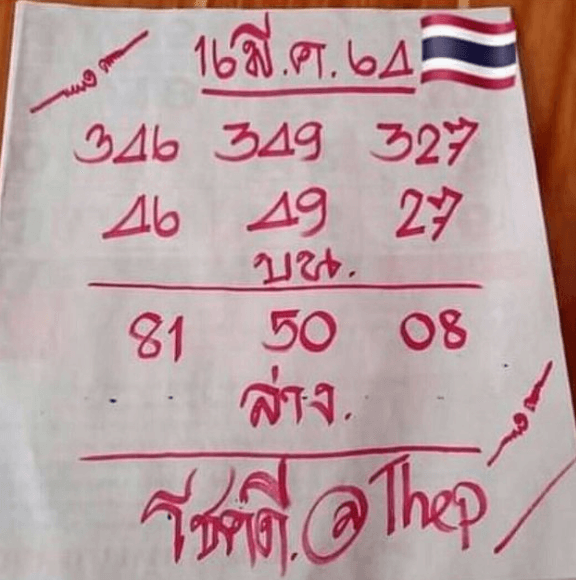 16 มี.ค. 64
346 349 327
46 49 27
บน.
81 50 08
ล่าง.
โชคดี. @Thep